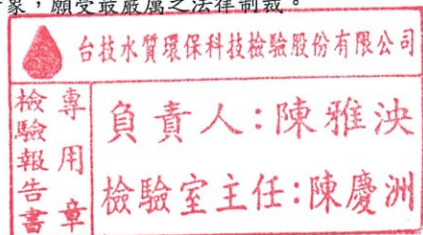 象，願受最嚴厲之法律制裁。
台技水質環保科技檢驗股份有限公司
檢驗報告書
專用章
負責人：陳雅泱
檢驗室主任：陳慶洲